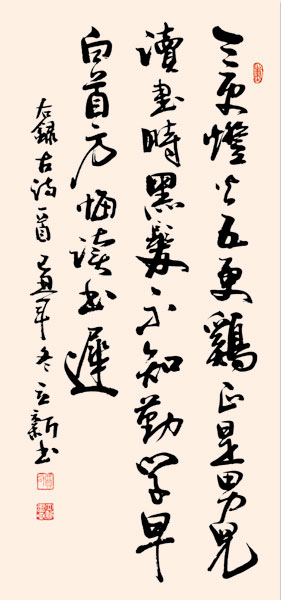 三更燈火五更鷄正是男兒
讀書時黑髮不知勤學早
白首方悔读书遲
右録古詩一首己丑年冬立新书